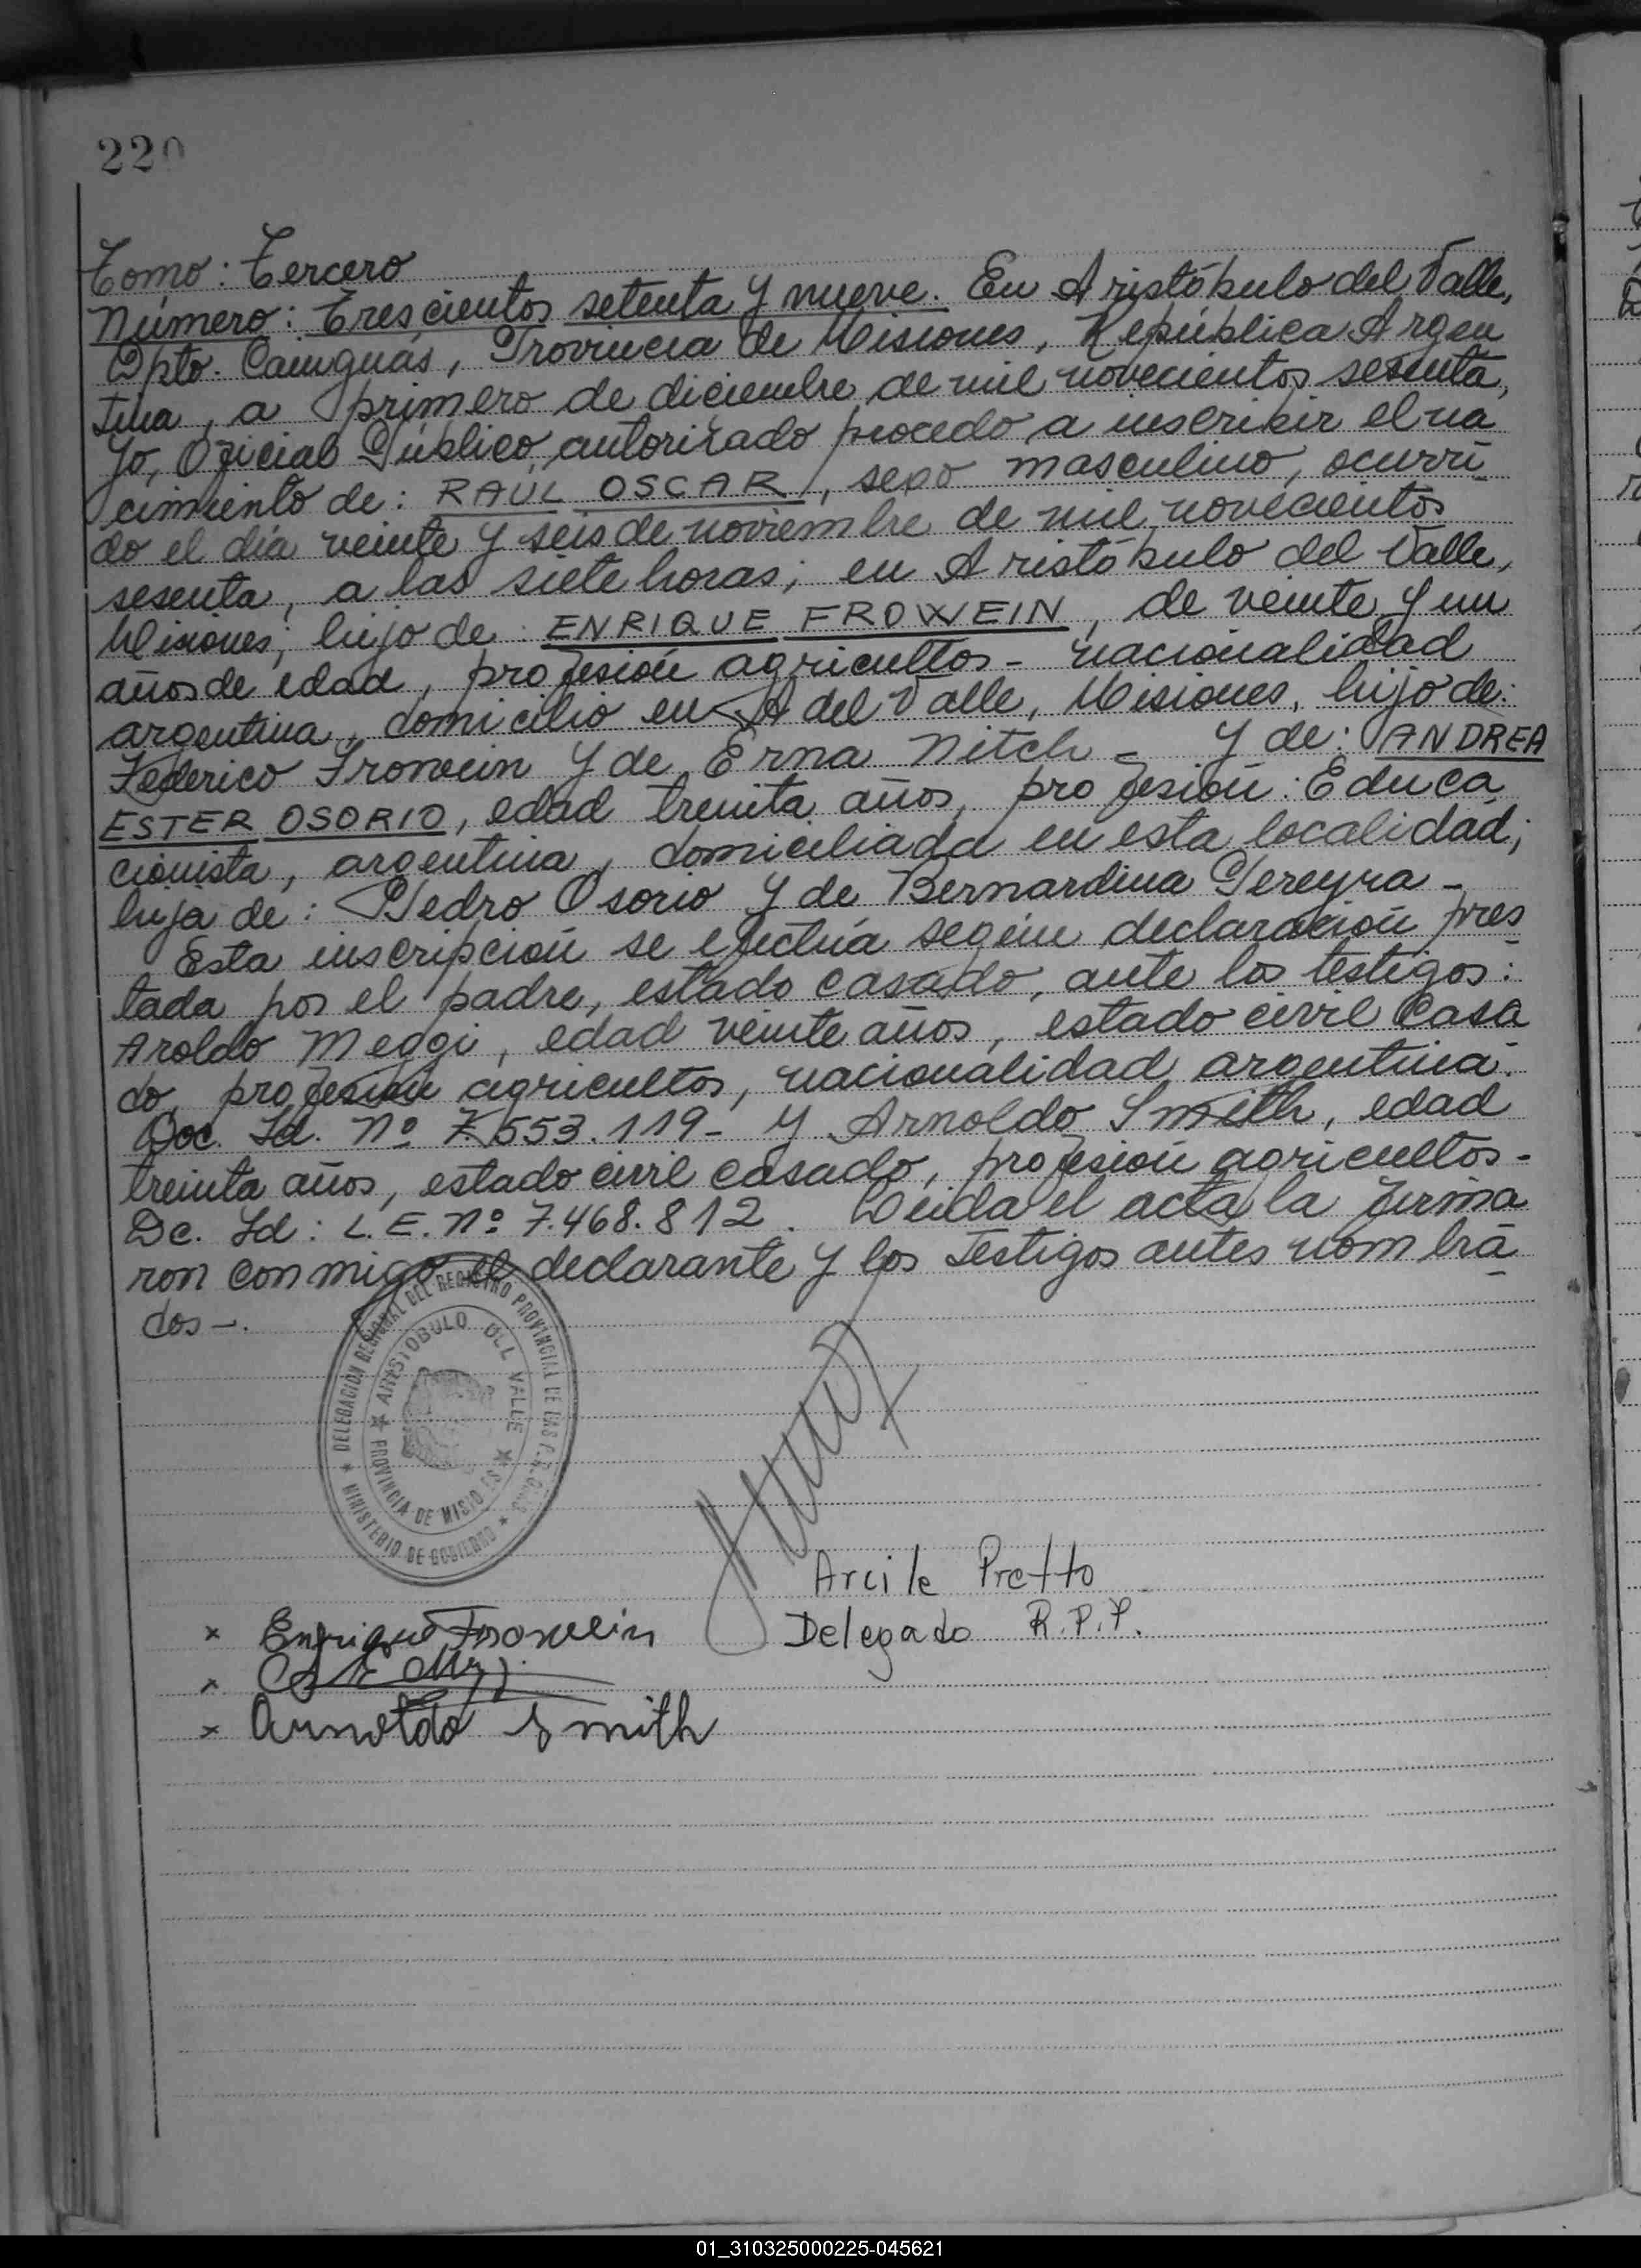 220
Tomo: Tercero
Número: Trescientos setenta y nueve. En Aristóbulo del Valle,
Dpto. Cainguás, Provincia de Misiones, República Argen
tina, a primero de diciembre de mil novecientos sesenta,
Yo, Oficial Público autorizado procedo a inscribir el na
cimiento de: RAÚL OSCAR, sexo masculino, ocurri
do el día veinte y seis de noviembre de mil novecientos
sesenta, a las siete horas; en Aristóbulo del Valle,
Misiones; hijo de: ENRIQUE FROWEIN, de veinte y un
años de edad, profesión agricultor - nacionalidad
argentina, domicilio en A del Valle, Misiones, hijo de:
Federico Frowein y de Erna Nitch - y de: ANDREA
ESTER OSORIO, edad treinta años, profesión: Educa
cionista, argentina, domiciliada en esta localidad;
hija de: Pedro Osorio y de Bernardina Pereyra -
Esta inscripción se efectúa según declaración pres
tada por el padre, estado casado, ante los testigos:
Aroldo Meggi, edad veinte años, estado civil casa
do, profesión agricultor, nacionalidad argentina.
Doc. Id. Nº 7.553.119 - y Arnoldo Smith, edad
treinta años, estado civil casado, profesión agricultor -
Dc. Id: L.E. Nº 7.468.812. Leida el acta la firma
ron conmigo el declarante y los testigos antes nombra
dos -.
DELEGACIÓN REGIONAL DEL REGISTRO PROVINCIAL DE LAS
ARISTOBULO DEL VALLE
PROVINCIA DE MISIONES
MINISTERIO DE GOBIERNO
Arcile Pretto
Delegado R.P.P.
x Enrique Frowein
x
x Arnoldo Smith
01_310325000225-045621